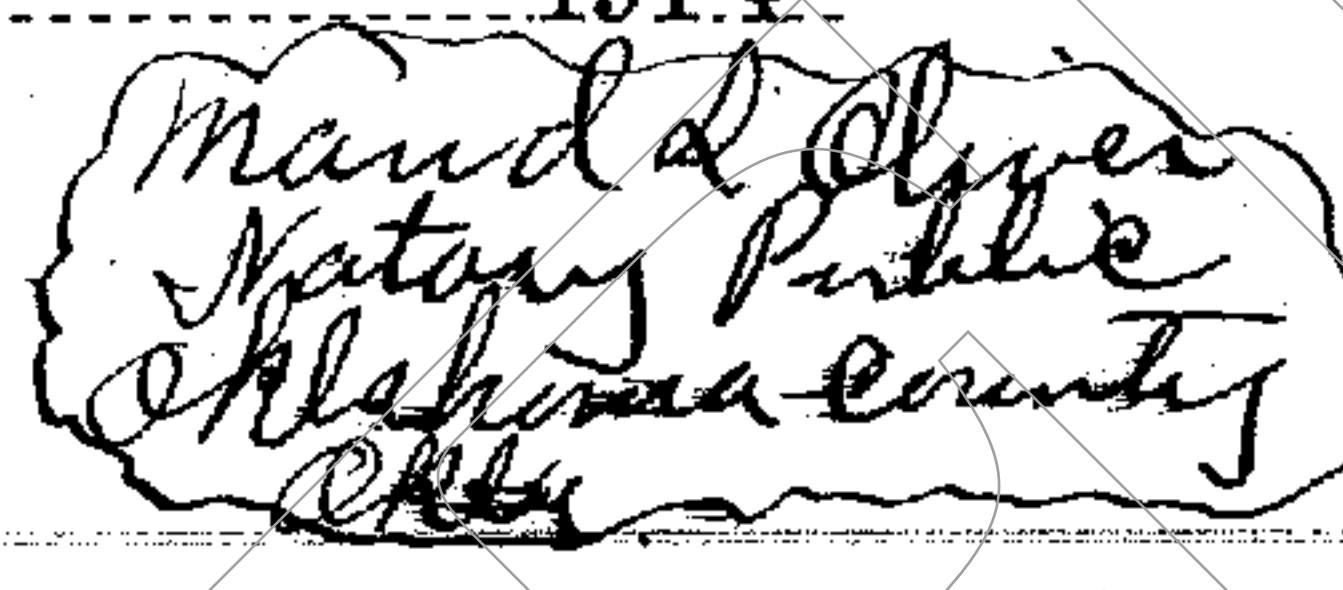 Maud L Olyer
Notary Public
Oklahoma County
Okla